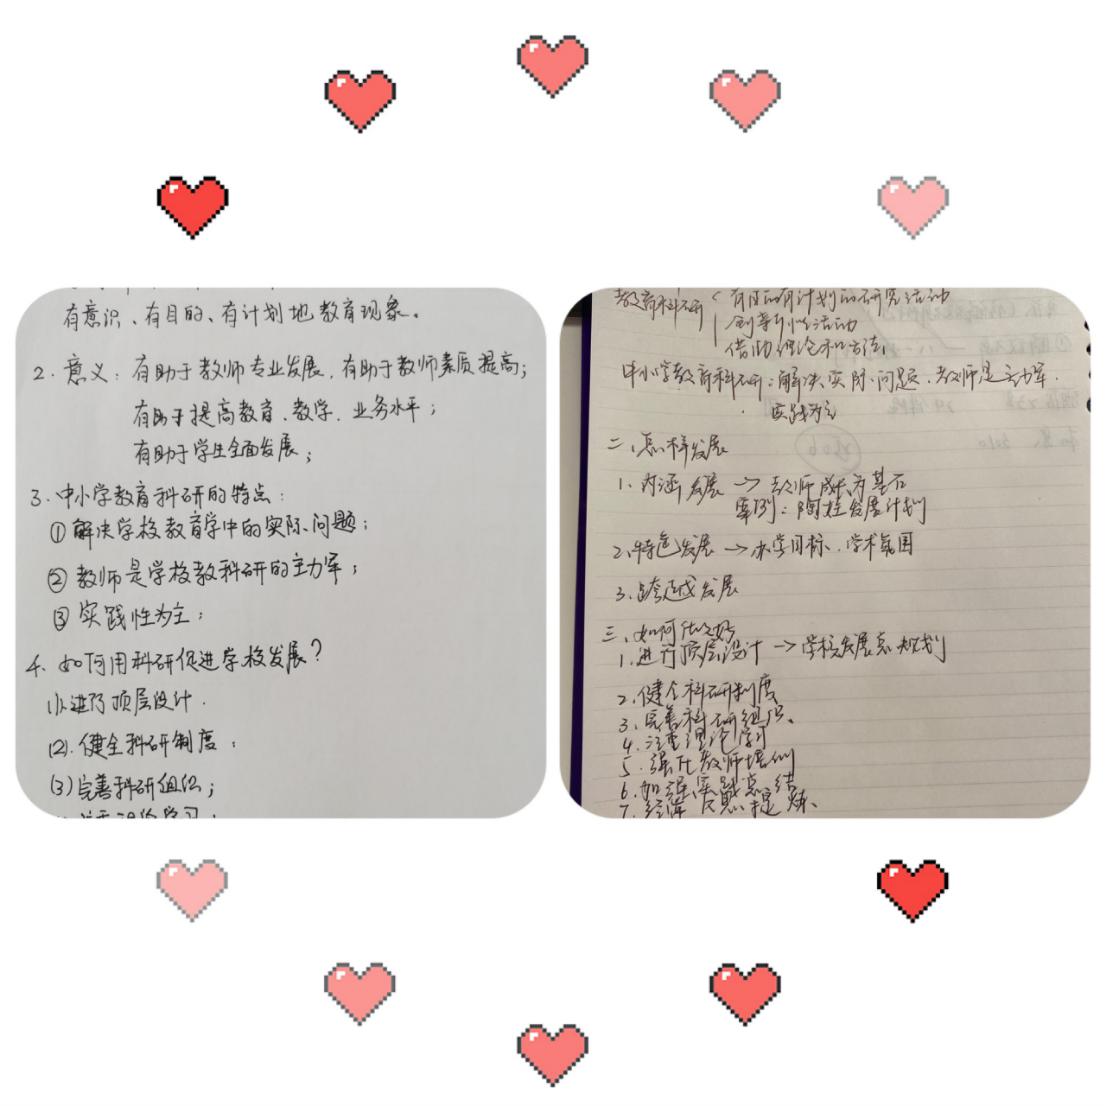 有意识、有目的、有计划地教育现象。
2. 意义：有助于教师专业发展，有助于教师素质提高；
有助于提高教育、教学、业务水平；
有助于学生全面发展；
3. 中小学教育科研的特点：
① 解决学校教育学中的实际问题；
② 教师是学校教科研的主力军；
③ 实践性为主；
4. 如何用科研促进学校发展？
(1) 进行顶层设计.
(2). 健全科研制度；
(3) 完善科研组织；
教育科研 有目的有计划的研究活动
创造性活动
借助理论和方法.
中小学教育科研：解决实际问题、教师是主力军.
实践为主
二、怎样发展
1、内涵发展 → 教师成长为基石
案例：陶桂发展计划
2、特色发展 → 办学目标、学术氛围
3、跨越发展
三、如何做好
1. 进行顶层设计 → 学校发展总规划
2. 健全科研制度
3. 完善科研组织、
4. 注重理论学习
5. 强化教师培训
6. 加强实践总结
7. 提炼、